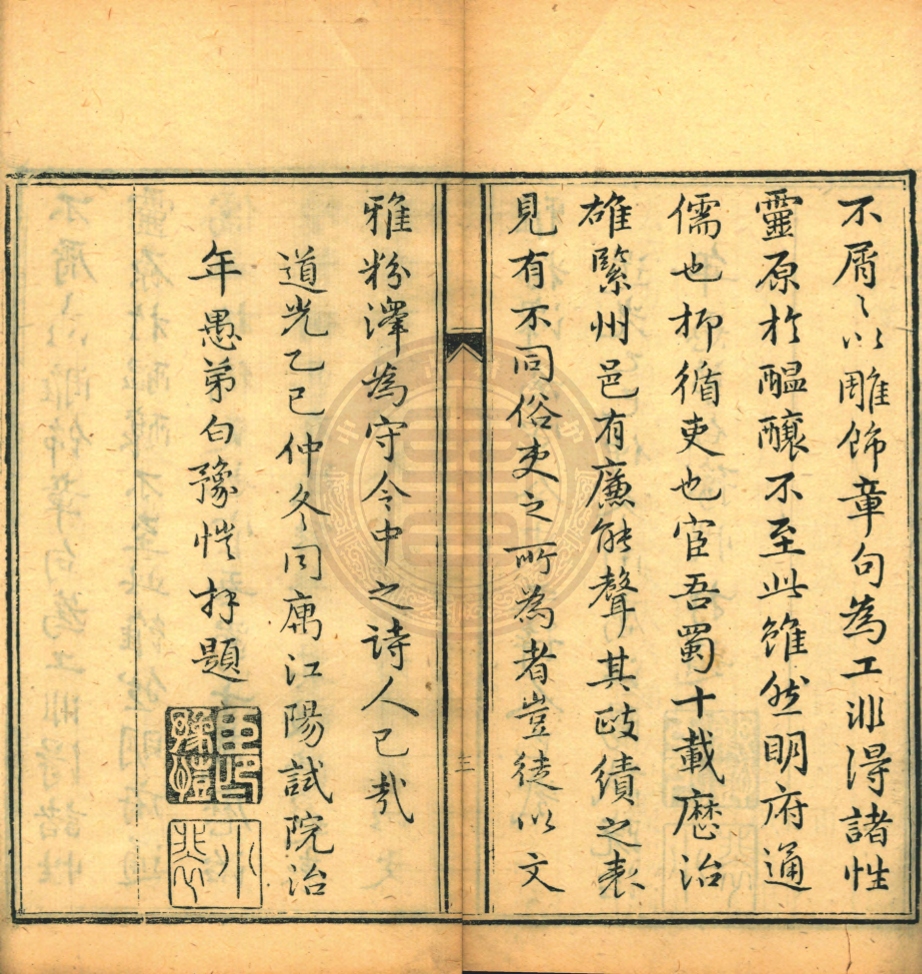 不屑〻以雕飾章句為工非得諸性
靈原於醖釀不至此雖然明府通
儒也抑循吏也宦吾蜀十載歷治
雄緊州邑有廉能聲其政績之表
見有不同俗吏之所為者豈徒以文
雅粉澤為守令中之詩人已哉
道光乙巳仲冬同寓江陽試院治
年愚弟白豫愷拜題
三